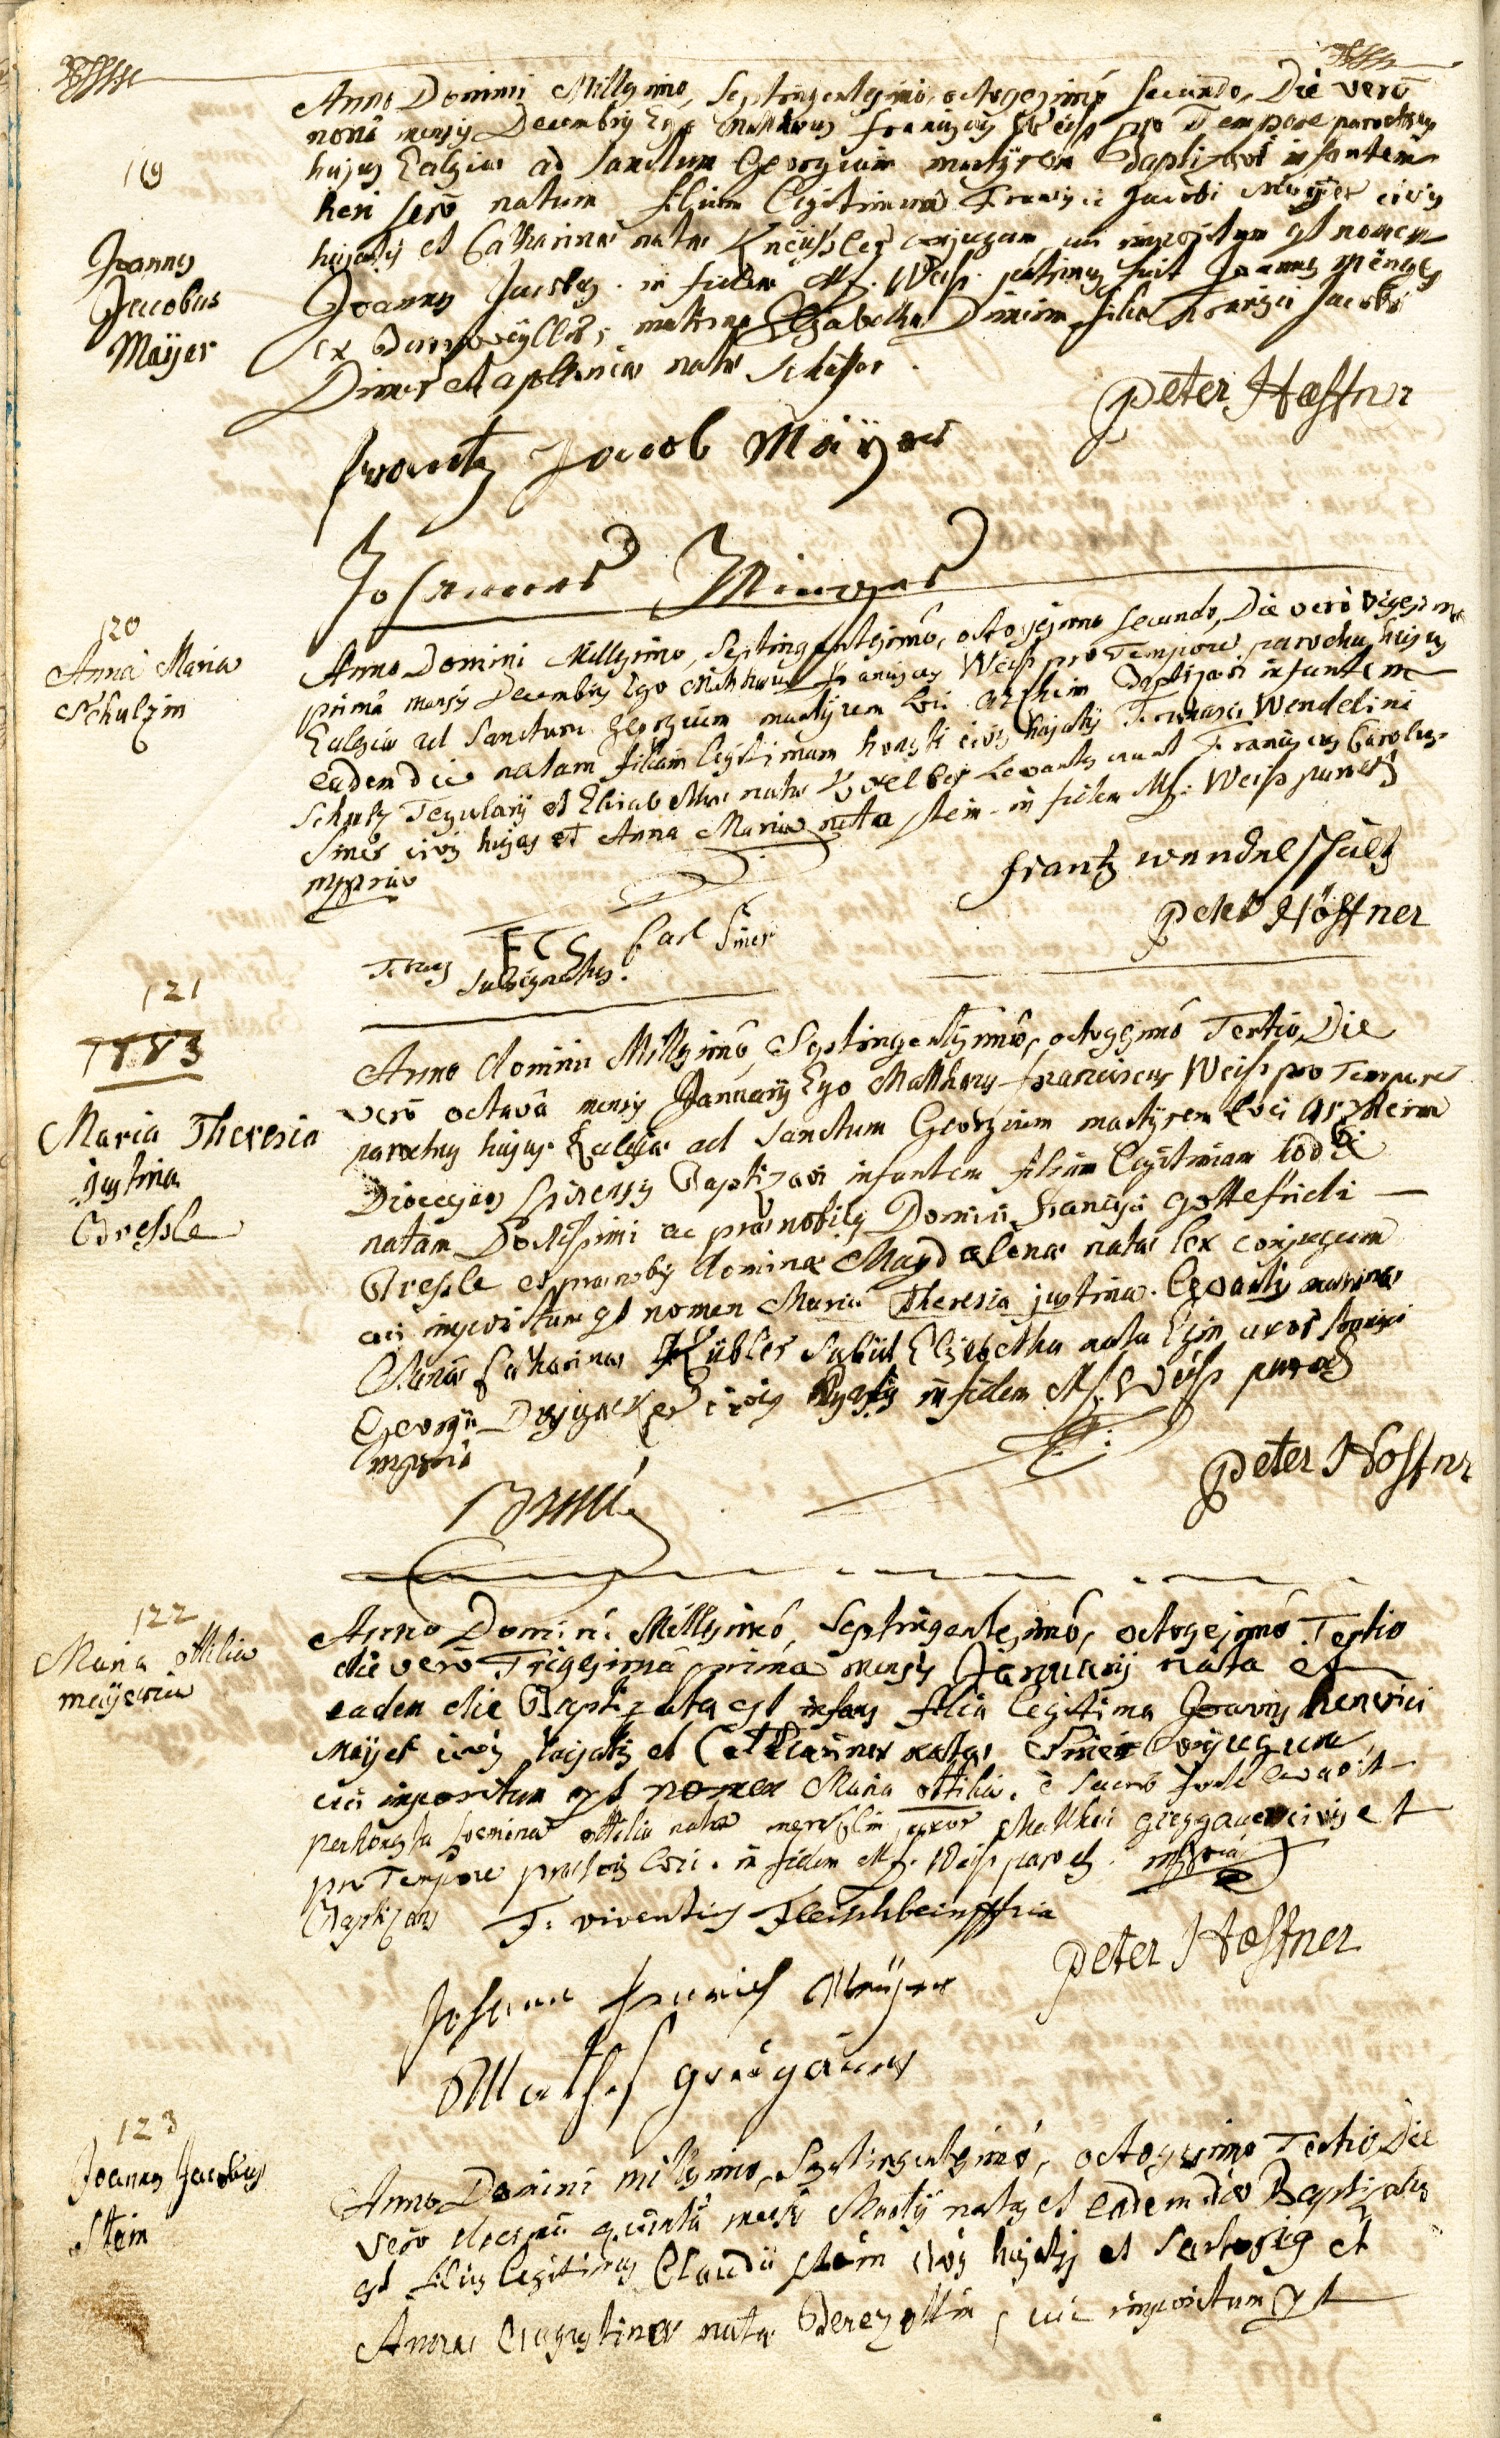 119
Joannes
Jacobus
Maÿer
Anno Domini Millesimo, Septingentesimo, octogesimo secundo, Die verò
nonâ mensis Decembris Ego Matthaeus franciscus Weiss pro Tempore parochus
hujus Ecclesiae ad Sanctum Georgium martÿrem Baptizavi infantem
heri serò natum filium legitimum Francisci Jacobi Maÿer civis
hujatis et Catharinae natae conjugum, cui impositum est nomen
Joannes Jacobus. in fidem M: F. Weiss. patrinus fuit Joannes Menges
ex matrina Elisabetha filia Francisci Jacobi
et apolloniae natae
Peter Hoffner
frantz Jacob Maÿer
Johannes Minges
120
Anna Maria
Schulzin
Anno Domini Millesimo, Septingentesimô, octogesimo secundo, Die verò vigesima
primâ mensis Decembris Ego Matthaeus Franciscus Weiss pro Tempore parochus hujus
Ecclesiae ad Sanctum Georgium martÿrem loci arzheim Baptizavi infantem
eadem die natam filiam legitimam honesti civis hujatis Francisci Wendelini
Schultz Tegularÿ et Elisabethae natae Levantes erant Franciscus Carolus
civis hujas et Anna Maria nata stein. in fidem M: F: Weiss paroch
mppria
frantz wendel schultz
Peter Höffner
Franz FCS Carl
Subsignatus.
121
1783
Maria Theresia
justina
Bressle
Anno domini Millesimô, Septingentesimô, octogesimô Tertio, Die
verò octavâ mensis Januarÿ Ego Matthaeus franciscus Weiss pro Tempore
parochus hujus Ecclesiae ad Sanctum Georgium martÿrem loci arzheim
Dioecesis Spirensis Baptizavi infantem filiam legitimam
natam Doctissimi ac praenobilis Domini Francisci gottefridi
Bressle et praenobis dominae Magdalenae natae lex conjugum
cui impositum est nomen Maria Theresia justina. Levantis
Catharinae Kübler Elisabetha nata uxor
Georgii civis hujatis in fidem M: F. Weiss paroch
mppria
Peter Hoffner
122
Maria ottilia
maÿerin
Anno Domini Millesimô, Septingentesimô, octogesimô Tertio
die verò Trigesimâ prima mensis Januarÿ nata et
eadem die Baptizata est infans filia legitima Joannis henrici
Maÿer civis hujatis et Catharinae natae conjugum
cui impositum est nomen Maria ottilia. è sacro fonte levavit
perhonesta foemina ottilia nata uxor Matthei civis et
pro Tempore praetoris loci. in fidem M: F. Weiss paroch. mppria
Baptizavi F: viventius Fleischbein mppria
Peter Hoffner
Johann Henrich Maÿer
Mathes
123
Joannes Jacobus
Stein
Anno Domini millesimo, Septingentesimô, octogesimo Tertio, Die
verò decimâ quintâ mensis Martÿ natus et Eadem die Baptizatus
est filius legitimus Claudii stein civis hujatis et Sartoris et
Annae Augustinae natae cui impositum est